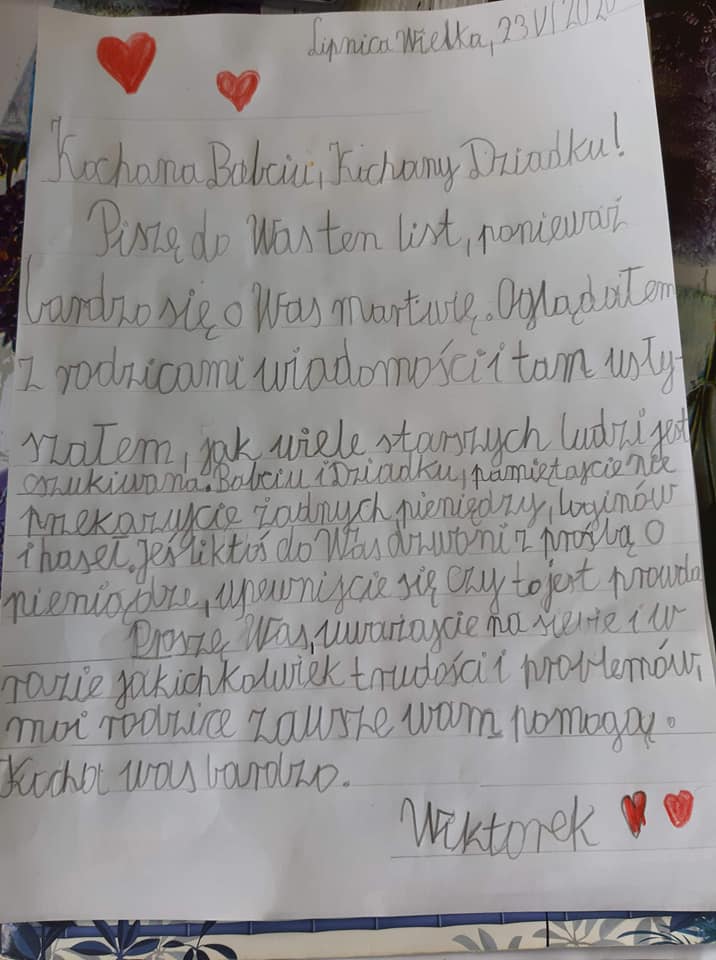 Lipnica Wielka, 23 VI 2020
Kochana Babciu, Kichany Dziadku!
Piszę do Was ten list, ponieważ
bardzo się o Was martwię. Oglądałem
z rodzicami wiadomości i tam usły-
szałem, jak wiele starszych ludzi jest
oszukiwana. Babciu i Dziadku, pamiętajcie nie
przekazujcie żadnych pieniędzy, loginów
i haseł. Jeśli ktoś do Was dzwoni z prośbą o
pieniądze, upewnijcie się czy to jest prawda
Proszę Was, uważajcie na siebie i w
razie jakichkolwiek trudości i problemów,
moi rodzice zawsze wam pomogą.
Kocha was bardzo.
Wiktorek